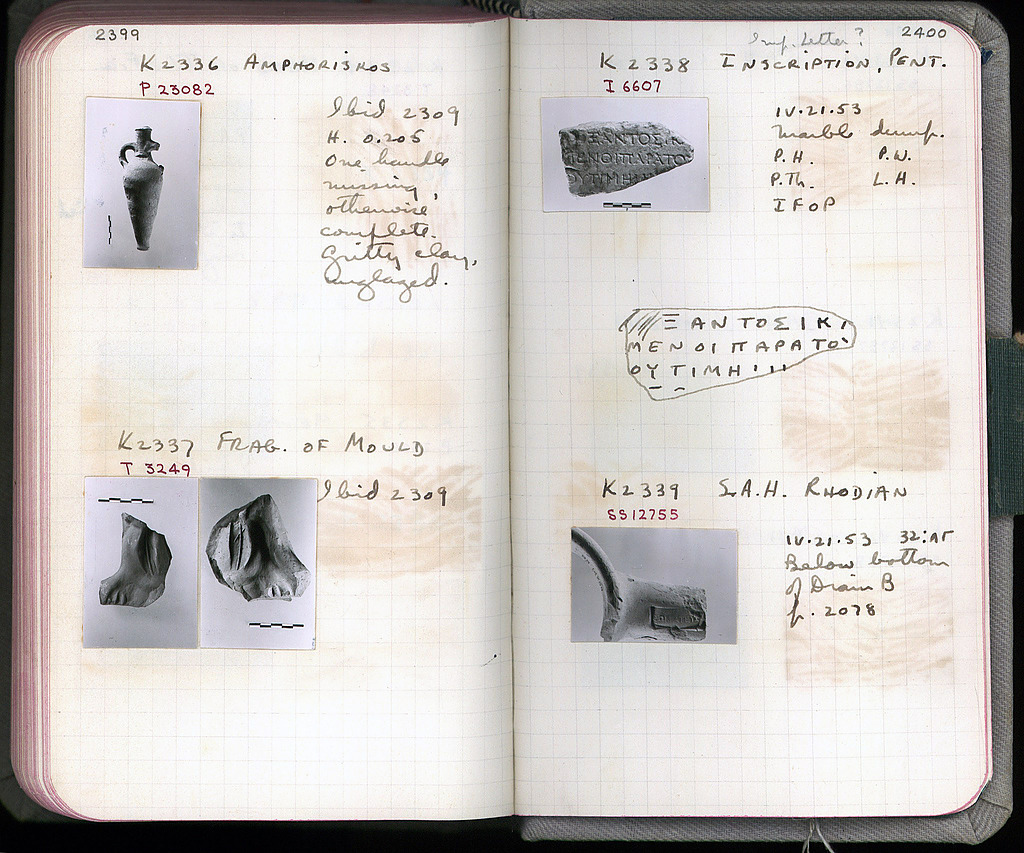 2399
K2336 AMPHORISKOS
P 23082
Ibid 2309
H. 0.205
One handle
missing,
otherwise
complete.
Gritty clay,
unglazed.
K2337 FRAG. OF MOULD
T 3249
Ibid 2309
2400
Imp. Letter?
K 2338 INSCRIPTION, PENT.
I 6607
IV.21.53
Marble dump.
P.H. P.W.
P.Th. L.H.
I FOP
ΞΑΝΤΟΣΙΚ
ΜΕΝΟΙΠΑΡΑΤΟ
ΟΥΤΙΜΗ
ΞΑΝΤΟΣΙΚΙ
ΜΕΝΟΙΠΑΡΑΤΟ
ΟΥΤΙΜΗ
K2339 S.A.H. RHODIAN
SS12755
IV.21.53 32:ΛΓ
Below bottom
of Drain B
p. 2078